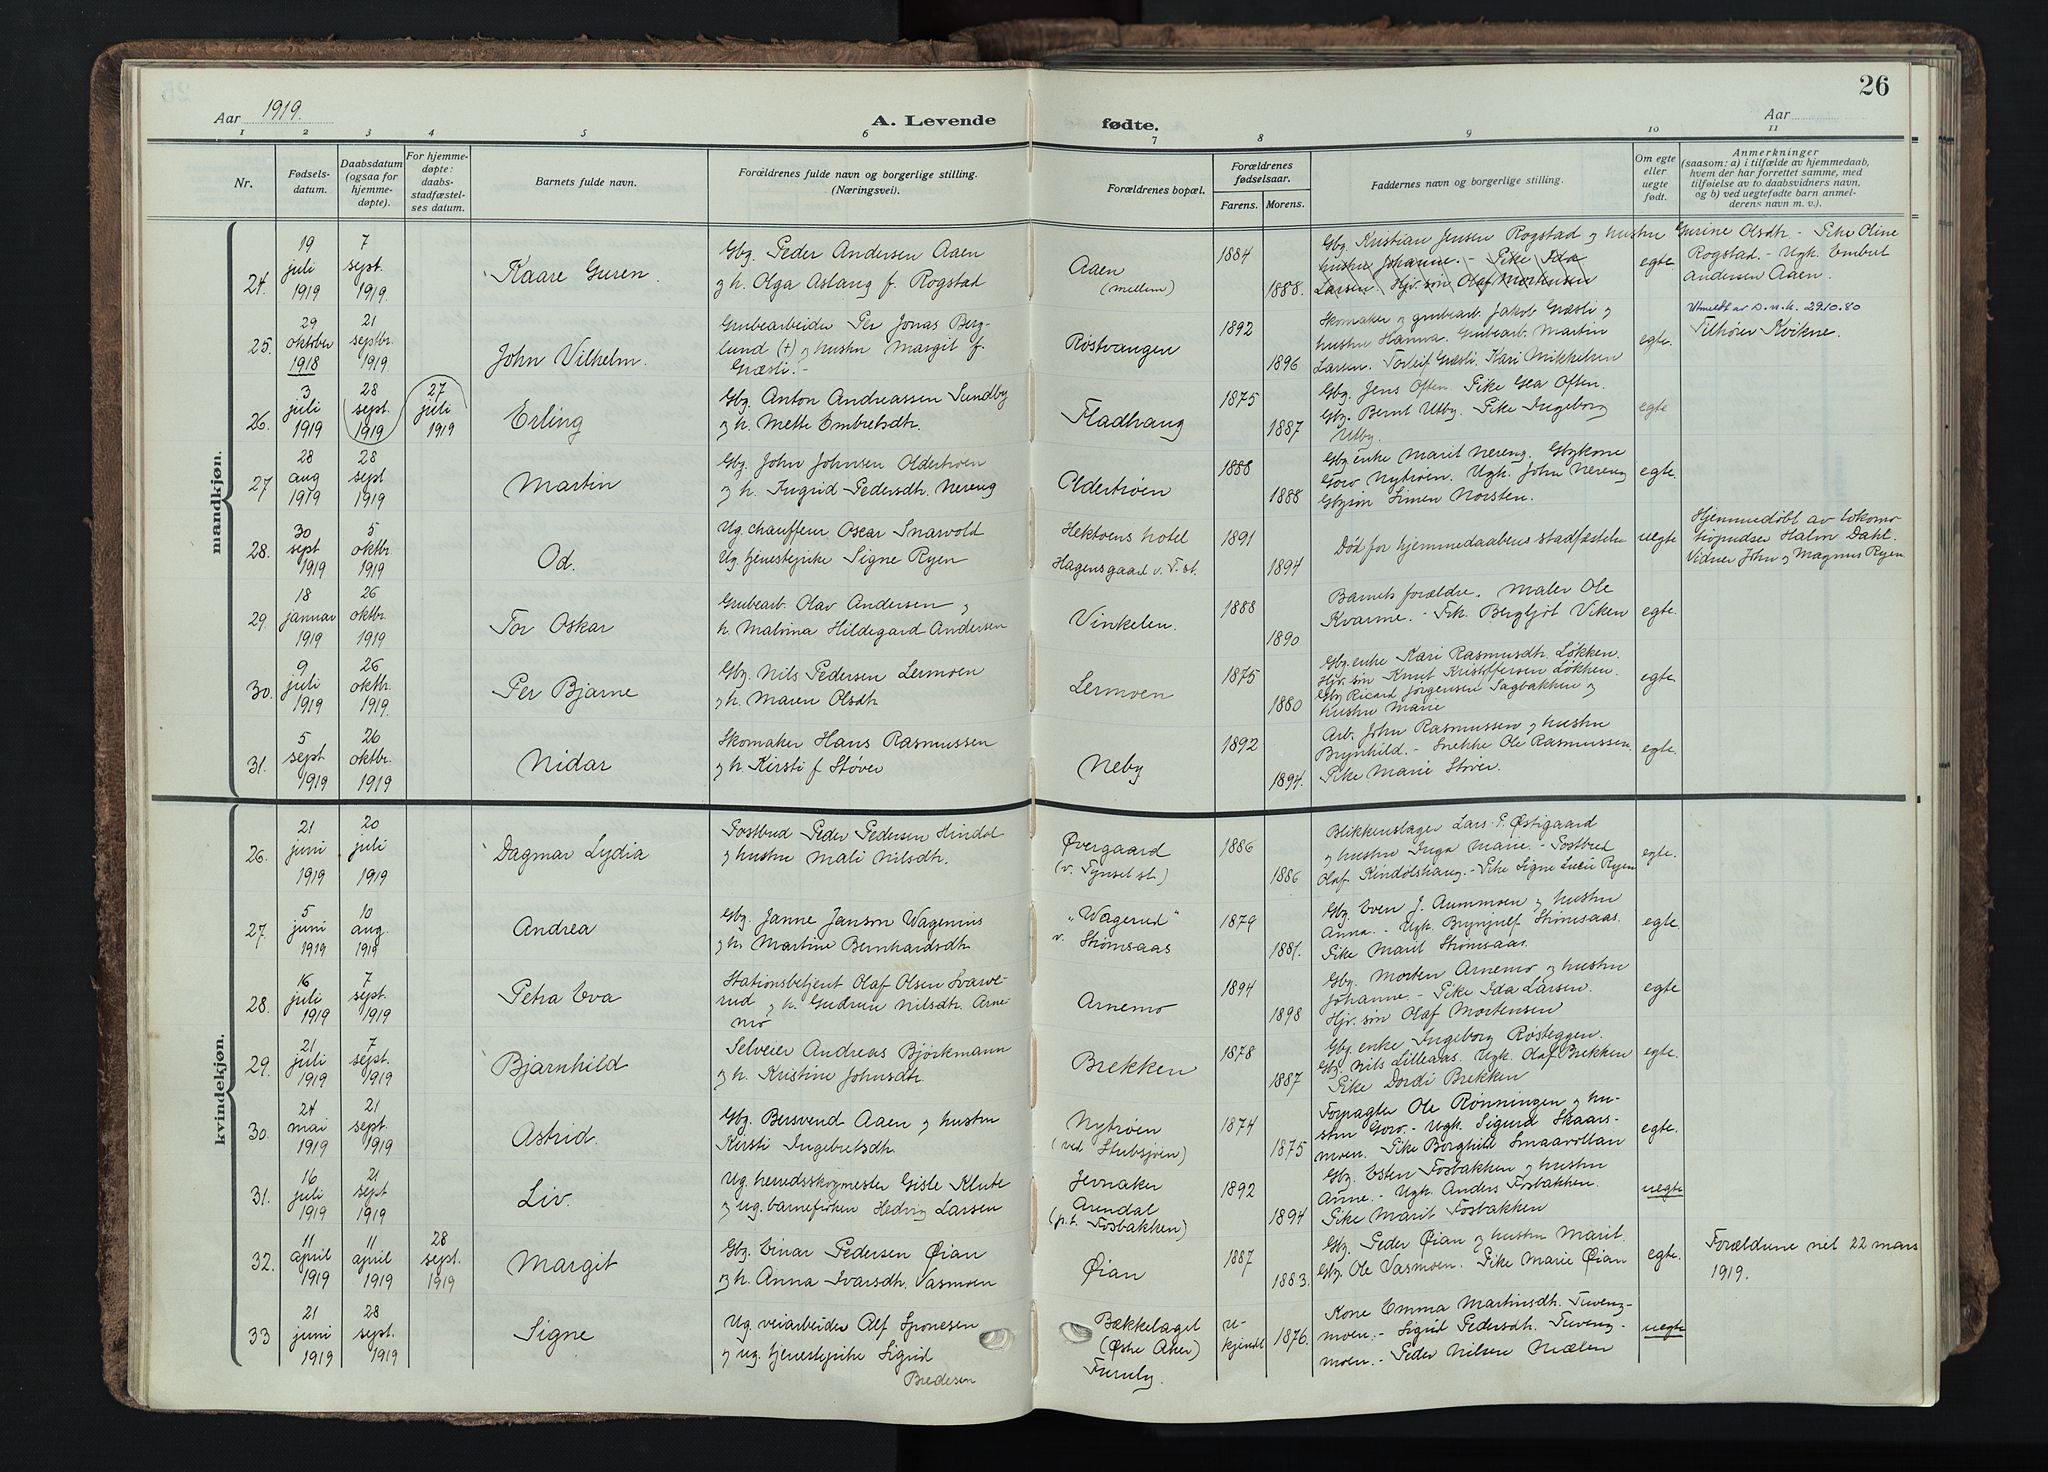 26
Aar 1919.
A. Levende fødte.
Aar
1 2 3 4 5 6 7 8 9 10 11
Nr.
Fødsels-
datum.
Daabsdatum
(ogsaa for
hjemme-
døpte).
For hjemme-
døpte:
daabs-
stadfæstel-
ses datum.
Barnets fulde navn.
Forældrenes fulde navn og borgerlige stilling.
(Næringsvei).
Forældrenes bopæl.
Forældrenes
fødselsaar.
Farens. Morens.
Faddernes navn og borgerlige stilling.
Om egte
eller
uegte
født.
Anmerkninger
(saasom: a) i tilfælde av hjemmedaab,
hvem der har forrettet samme, med
tilføielse av to daabsvidners navn,
og b) ved uegtefødte barn anmel-
derens navn m. v.).
mandkjøn.
24.
19
juli
1919
7
sept.
1919.
Kaare Guren.
Gbr. Peder Andersen Aaen
og h. Olga Aslaug f. Rogstad
Aaen
(mellem)
1884
1888.
Gbr. Kristian Jensen Rogstad og hustru Gurine Olsdtr. - Pike Oline
hustru Johanne. - Pike Ida
Larsen. Hjv. søn Olaf Mortensen
egte
Rogstad. - Ugk. Embret
Andersen Aaen.
25.
29
oktober
1918
21
septbr.
1919.
John Vilhelm.
Grubearbeider Per Jonas Berg-
lund (†) og hustru Margit f.
Græsli. -
Røstvangen
1892
1896
Skomaker og grubearb. Jakob Græsli og
hustru Hanna. Grubearb. Martin
Larsen. Torleif Græsli. Kari Mikkelsen
egte.
Utmeldt av D.n.k. 29.10.80
Tilhører Kvikne.
26.
3
juli
1919
28
sept.
1919
27
juli
1919
Erling
Gbr. Anton Andreassen Sundby
og h. Mette Embretsdtr.
Fladhaug
1875
1887
Gbr. Jens Often. Pike Gea Often.
Gbr. Bernt Utby. Pike Ingeborg
Utby.
egte
27
28
aug
1919
28
sept
1919
Martin
Gbr. John Johnsen Oldertrøen
og h. Ingrid Pedersdtr. Nereng
Oldertrøen
1888
1888
Gbr. enke Marit Nereng. Gbrkone
Goro Nytrøen. Ugk. John Nereng
Gbrsøn Simen Norsten.
egte.
28.
30
sept
1919
5
oktbr
1919
Od.
Ug. chauffeur Oscar Snarvold
Ug. tjenestepike Signe Ryen
Hektoens hotel
Hagensgaard v. T. st.
1891
1894
Død før hjemmedaabens stadfæstelse
uegte
Hjemmedøbt av lokomo
tivpudser Halm Dahl.
Vidner John og Magnus Ryen
29.
18
januar
1919
26
oktbr.
1919
Tor Oskar
Grubearb. Olav Andersen og
h. Malvina Hildegard Andersen
Vinkelen.
1888
1890
Barnets forældre. Maler Ole
Kvarme. - Frk. Bergljot Viken
egte.
30.
9
juli
1919
26
oktbr.
1919.
Per Bjarne
Gbr. Nils Pedersen Lermoen
og h. Maren Olsdtr.
Lermoen
1875
1880
Gbr. enke Kari Rasmusdtr. Løkken.
Hjv. søn Knut Kristoffersen Løkken.
Gbr. Ricard Jørgensen Sagbakken og
hustru Marie
egte.
31.
5
sept
1919
26
oktbr.
1919
Nidar
Skomaker Hans Rasmussen
og h. Kirsti f. Støver
Neby
1892
1894.
Arb. John Rasmussen og hustru
Brynhild. - Snekke Ole Rasmussen.
Pike Marie Støver.
egte.
kvindekjøn.
26.
21
juni
1919
20
juli
1919
Dagmar Lydia
Postbud Peder Pedersen Hindal
og hustru Mali Nilsdtr.
Øvergaard
(v. Tynset st.)
1886
1886
Blikkenslager Lars P. Østigaard
og hustru Inga Marie. - Postbud
Olaf Kindølshaug. - Pike Signe Lucie Ryen
egte.
27.
5
juni
1919
10
aug.
1919
Andrea
Gbr. Janne Janson Wagenius
og h. Martine Bernhardsdtr.
"Wagerud"
v. Strømsaas
1879
1881.
Gbr. Even J. Aummoen og hustru
Anna. - Ugk. Brynjulf Strømsaas.
Pike Marit Strømsaas.
egte.
28.
16
juli
1919
7
sept.
1919
Petra Eva
Stationsbetjent Olaf Olsen Svarve-
rud og h. Gudrun Nilsdtr. Arne-
mo
Arnemo
1894
1898
Gbr. Morten Arnemo og hustru
Johanne. - Pike Ida Larsen.
Hjv. søn Olaf Mortensen
egte
29.
21
juli
1919
7
sept.
1919
Bjarnhild
Selveier Andreas Bjørkmann
og h. Kristine Johnsdtr.
Brekken
1878
1887
Gbr. enke Ingeborg Røsteggen.
Gbr. Nils Lilleaas. Ugk. Olaf Brekken
Pike Dordi Brekken
egte.
30.
24
mai
1919
21
sept.
1919
Astrid.
Gbr. Bersvend Aaen og hustru
Kirsti Ingebretsdtr.
Nytrøen
(ved Stubsjøen)
1874
1875
Forpagter Ole Rønningen og hu-
stru Goro. - Ugk. Sigurd Skaars-
moen. Pike Borghild Smaavollan
egte.
31.
16
juli
1919
21
sept
1919
Liv.
Ug. herredsskogmester Gisle Klute
og ug. barnefrøken Hedvig Larsen
Jevnaker
Arendal
(p.t. Fosbakken)
1892
1894
Gbr. Esten Fosbakken og hustru
Anne. - Ugk. Anders Fosbakken.
Pike Marit Fosbakken
uegte
32.
11
april
1919
11
april
1919
28
sept.
1919
Margit
Gbr. Einar Pedersen Øian
og h. Anna Ivarsdtr. Vasmoen
Øian
1887
1883.
Gbr. Peder Øian og hustru Marit.
Gbr. Ole Vasmoen. Pike Marie Øian
egte.
Forældrene viet 22 mars
1919.
33
21
juni
1919
28
sept.
1919
Signe
Ug. veiarbeider Alf Sponesen
og ug. tjenestepike Sigrid
Bredesen
Bækkelaget
(Østre Aker)
Furuly.
u-
kjendt
1876.
Kone Emma Martinsdtr. Tuveng-
moen. - Sigrid Pedersdtr. Tuveng-
moen. - Peder Nilsen Mælen
uegte